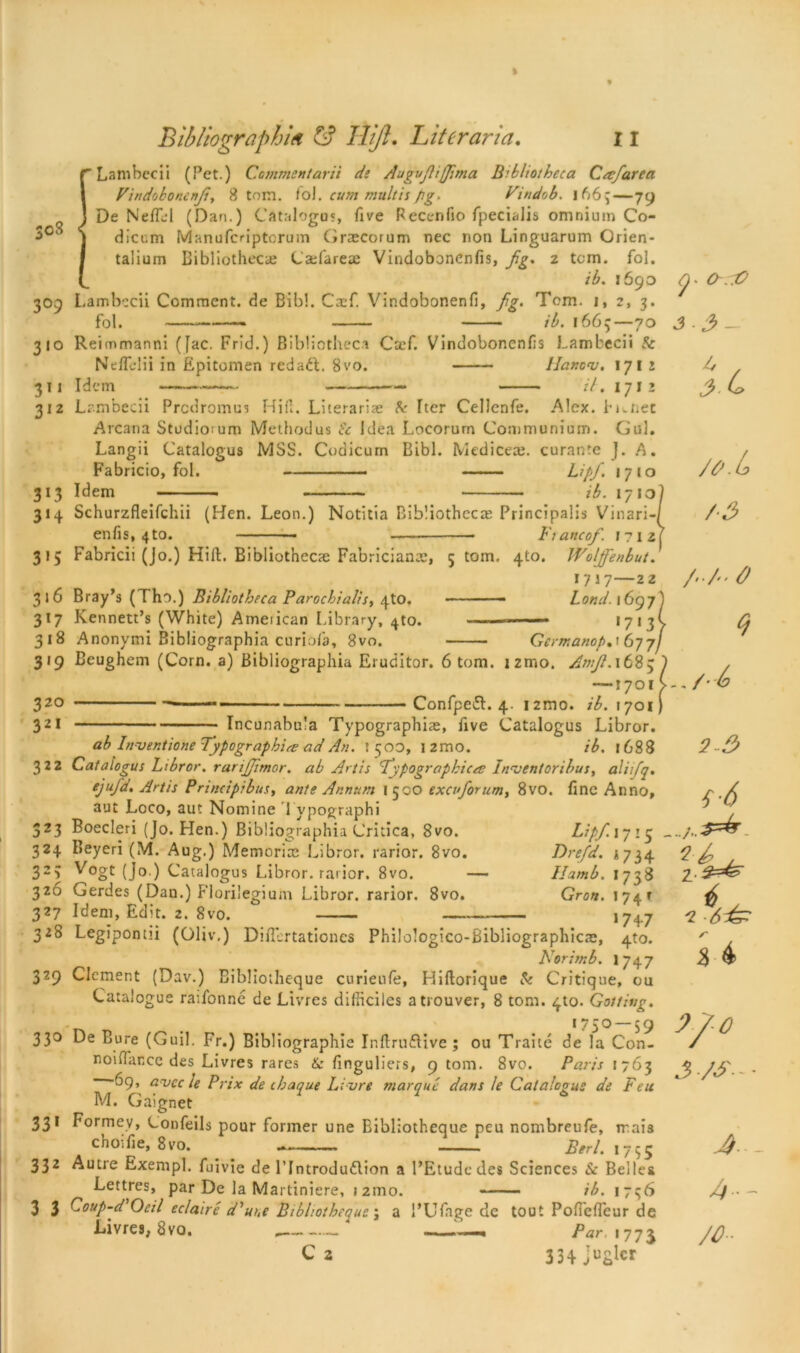 Bibliographia & Hiſt. Literaria. 11
308 Lambecii (Pet.) Commentarii de Auguſtiſſima Bibliotheca Cæſarea
Vindobonenſi, 8 tom. fol. cum multis fig. Vindob. 1665—79
De Neſſel (Dan.) Catalogus, ſive Recenſio ſpecialis omnium Co-
dicum Manuſcriptorum Græcorum nec non Linguarum Orien-
talium Bibliothecæ Cæſareæ Vindobonenſis, fig. 2 tom. fol.
ib. 1690 9 - 0 - : 0
309 Lambecii Comment. de Bibl. Cæſ. Vindobonenſi, fig. Tom. 1, 2, 3.
fol. —— —— —— ib. 1665—70 3 - 3 —
310 Reimmanni (Jac. Frid.) Bibliotheca Cæſ. Vindobonenſis Lambecii &
Neſſelii in Epitomen redact. 8vo. —— Hanov. 1712 4
311 Idem —— —— —— ib. 1712 3 . 6
312 Lambecii Prodromus Hiſt. Literariæ & Iter Cellenſe. Alex. Fichet
Arcana Studiorum Methodus & Idea Locorum Communium. Gul.
Langii Catalogus MSS. Codicum Bibl. Mediceæ. curante J. A.
Fabricio, fol. —— —— Lipſ. 1710 10 . 6
313 Idem —— —— —— ib. 1710
314 Schurzfleiſchii (Hen. Leon.) Notitia Bibliothecæ Principalis Vinari-
enſis, 4to. —— —— Francof. 1712 1 - 3
315 Fabricii (Jo.) Hiſt. Bibliothecæ Fabricianæ, 5 tom. 4to. Wolffenbut.
1717—22 1 - 1 - 0
316 Bray's (Tho.) Bibliotheca Parochialis, 4to. —— Lond. 1697
317 Kennett's (White) American Library, 4to. —— 1713 9
318 Anonymi Bibliographia curioſa, 8vo. —— Germanop. 1677
319 Beughem (Corn. a) Bibliographia Eruditor. 6 tom. 12mo. Amſt. 1685
—1701
320 —— —— —— Conſpect. 4. 12mo. ib. 1701 - . 1 - 6
321 —— —— Incunabula Typographiæ, ſive Catalogus Libror.
ab Inventione Typographiæ ad An. 1500, 12mo. ib. 1688 2 - 3
322 Catalogus Libror. rariſſimor. ab Artis Typographicæ Inventoribus, aliiſq.
ejuſd. Artis Principibus, ante Annum 1500 excuſorum, 8vo. ſine Anno,
aut Loco, aut Nomine Typographi
323 Boecleri (Jo. Hen.) Bibliographia Critica, 8vo. Lipſ. 1715
324 Beyeri (M. Aug.) Memoriæ Libror. rarior. 8vo. Dreſd. 1734
325 Vogt (Jo.) Catalogus Libror. rarior. 8vo. — Hamb. 1738
326 Gerdes (Dan.) Florilegium Libror. rarior. 8vo. Gron. 1741 6
327 Idem, Edit. 2. 8vo. —— —— 1747
328 Legipontii (Oliv.) Diſſertationes Philologico-Bibliographicæ, 4to.
Norimb. 1747
329 Clement (Dav.) Bibliotheque curieuſe, Hiſtorique & Critique, ou
Catalogue raiſonné de Livres difficiles a trouver, 8 tom. 4to. Gotting.
1750—59
330 De Bure (Guil. Fr.) Bibliographie Inſtructive ; ou Traité de la Con-
noiſſance des Livres rares & ſinguliers, 9 tom. 8vo. Paris 1763
—69, avec le Prix de chaque Livre marqué dans le Catalogue de Feu
M. Gaignet
331 Formey, Conſeils pour former une Bibliotheque peu nombreuſe, mais
choiſie, 8vo. —— —— Berl. 1755 4 - -
332 Autre Exempl. ſuivie de l'Introduction a l'Etude des Sciences & Belles
Lettres, par De la Martiniere, 12mo. —— ib. 1756 4 - -
3 3 Coup-d'Oeil eclairé d'une Bibliotheque ; a l'Uſage de tout Poſſeſſeur de
Livres, 8vo. —— —— Par. 1773 10 - -
C 2 334 Jugler